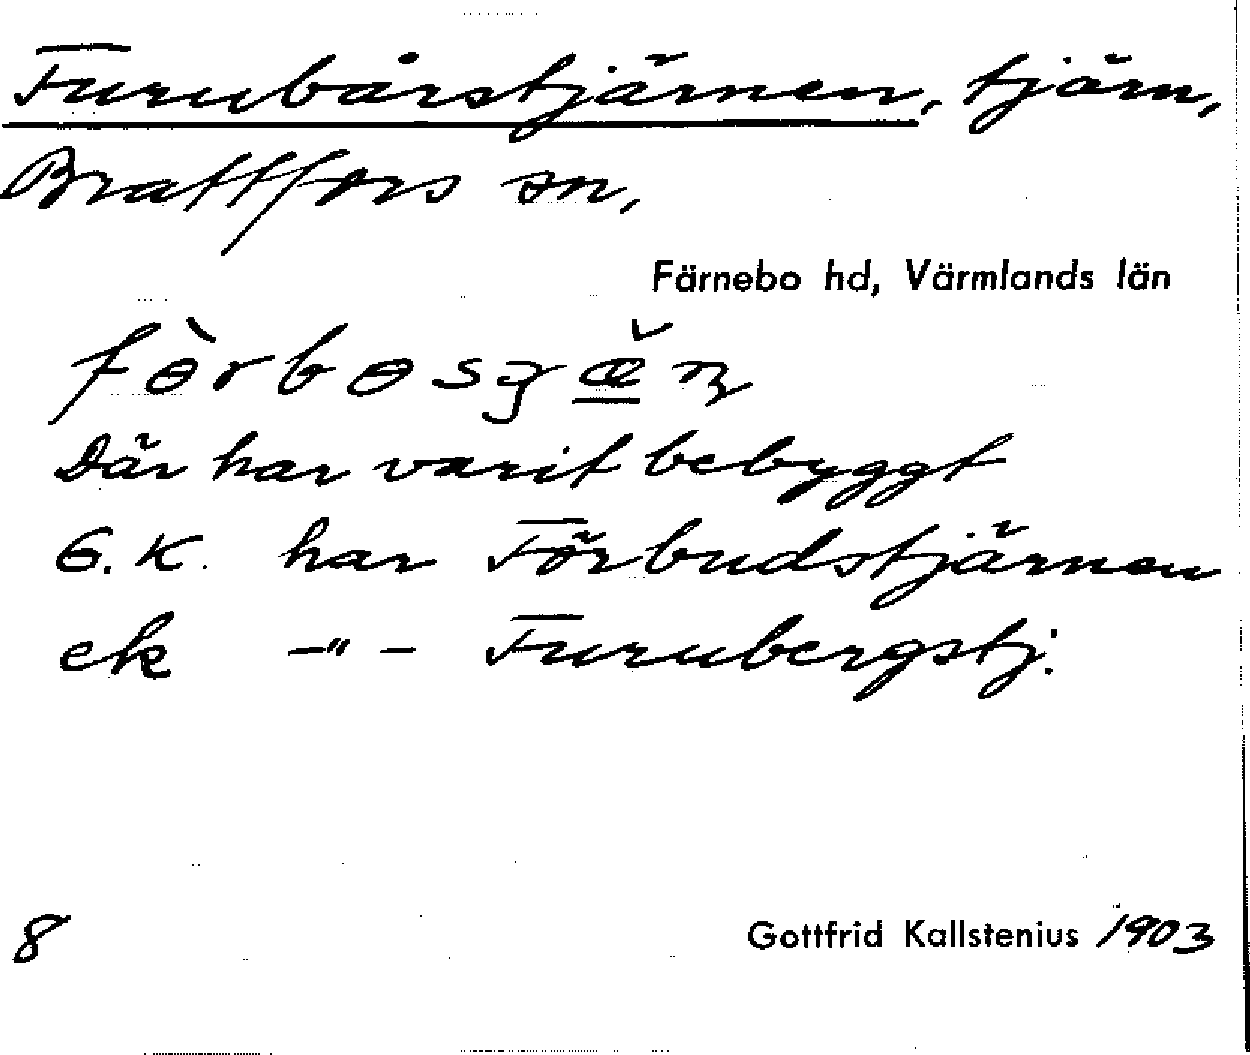 Furubårstjärnen, tjärn,
Brattfors sn,
Färnebo hd, Värmlands län
Där har varit bebyggt
G.K. har Förbudstjärnen
ek -"- Furubergstj.
8
Gottfrid Kallstenius 1903